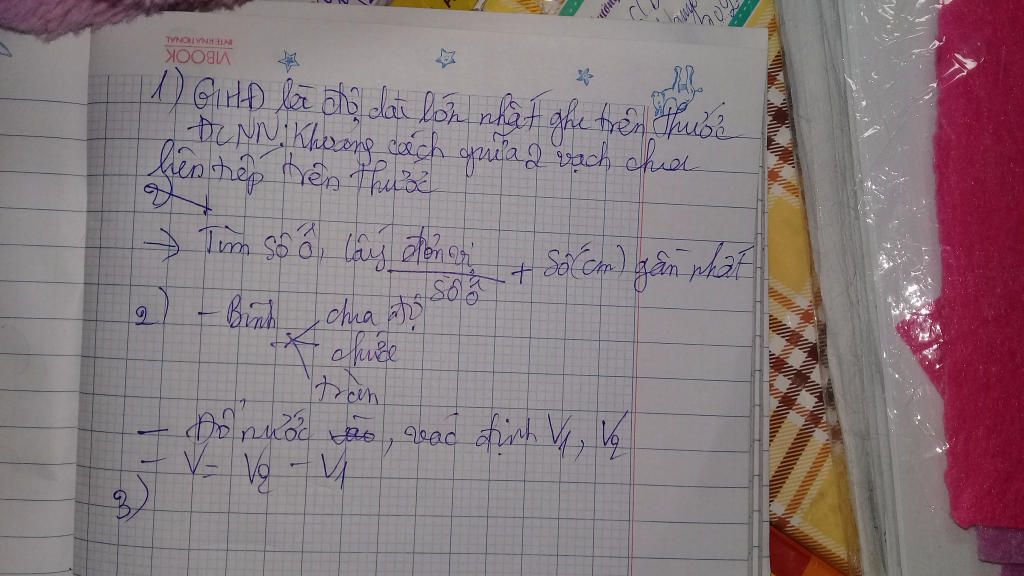 VIBOOK
INTERNATIONAL
1) GHĐ là độ dài lớn nhất ghi trên thước
ĐCNN: Khoảng cách giữa 2 vạch chia
liên tiếp trên thước
→ Tìm số ô, lấy đơn vị / số ô + số (cm) gần nhất
2) - Bình chia độ
chứa
tràn
- Đổ nước vào, xác định V1, V2
- V = V2 - V1
3)